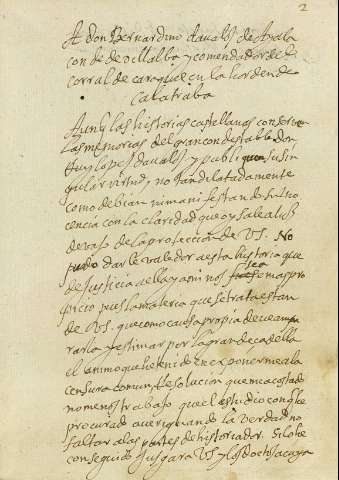 2
A don Bernardino davalos de Ayala
conde de Villalba y comendador de
corral de caraquel en la horden de
calatraba
Aunq las historias castellanas conserven
las memorias del gran condestable don
Ruy lopes davalos y publiquen su sin
gular virtud, no tan delatadamente
como debian ni manifestando su ino
cencia con la claridad que oy sale a luz
devajo de la protección de VS. No
pudo dar le valedor a esta historia que
de justicia a ella y a mi nos sea mas pro
picio pues la materia que se trata es tan
de VS. que como causa propia deve ampa
rarla y estimar por la grandeça della
el animo que he tenido en exponerme a la
censura comun, Resolución que me a costado
no menos trabajo que el estudio con que
procurado averiguando la verdad no
faltar a las partes de historiador. Si lo he
conseguido jusgara VS y los doctos a cuya